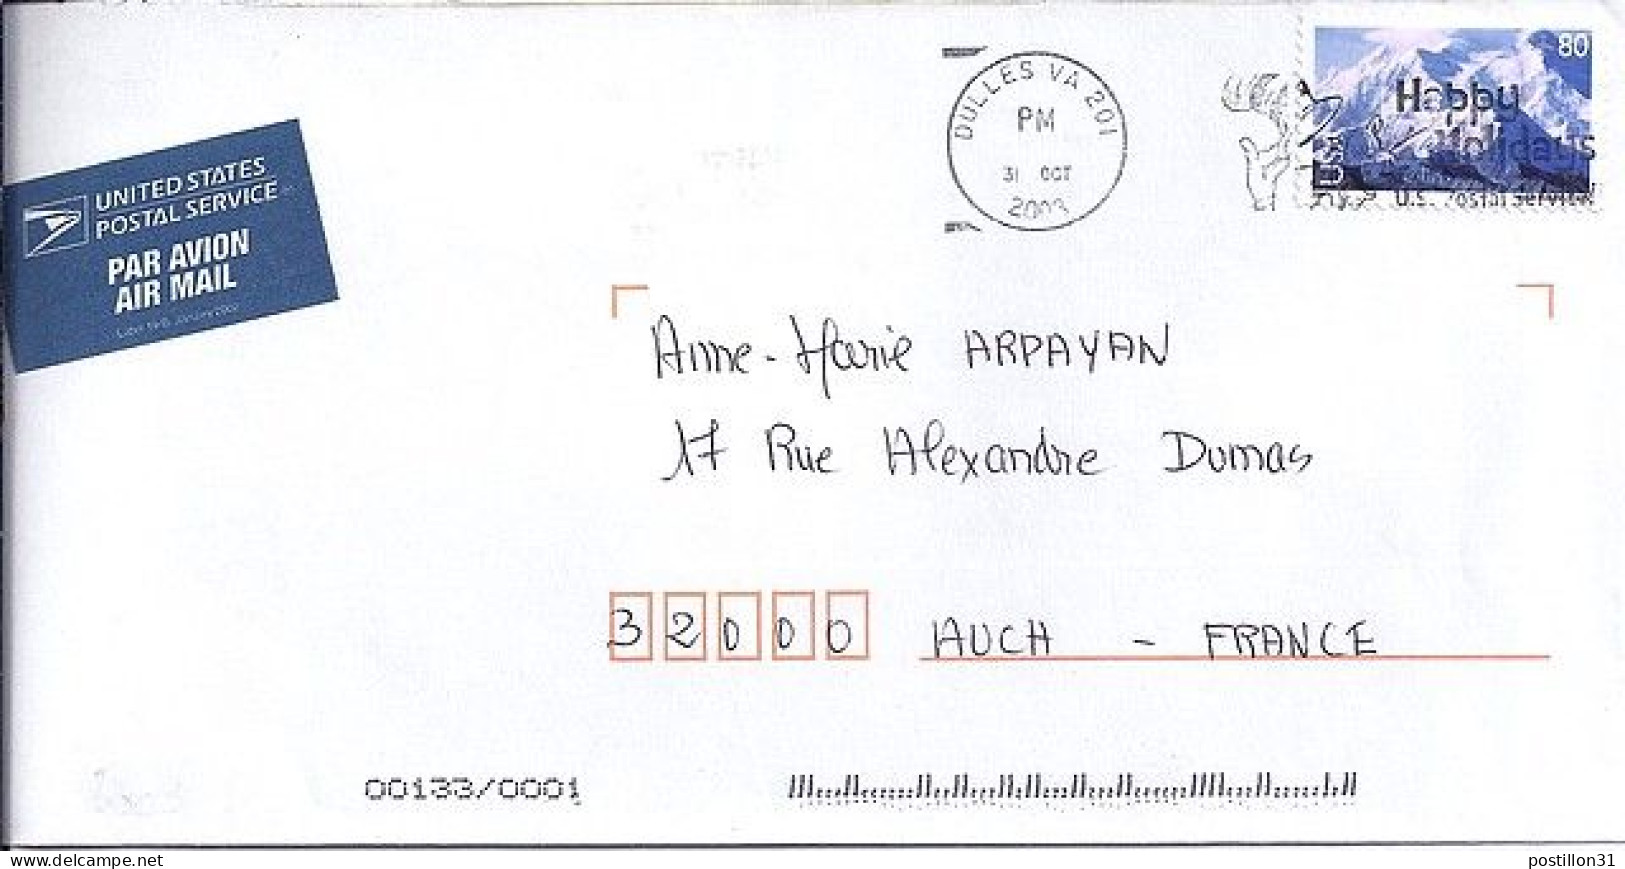 UNITED STATES
POSTAL SERVICE
PAR AVION
AIR MAIL
DULLES VA 201
PM
31 OCT
2003
80
USA
Happy
Holidays
U.S. Postal Service
Anne-Marie ARPAYAN
17 Rue Alexandre Dumas
32000 AUCH - FRANCE
00133/0001
www.delcampe.net
postillon31